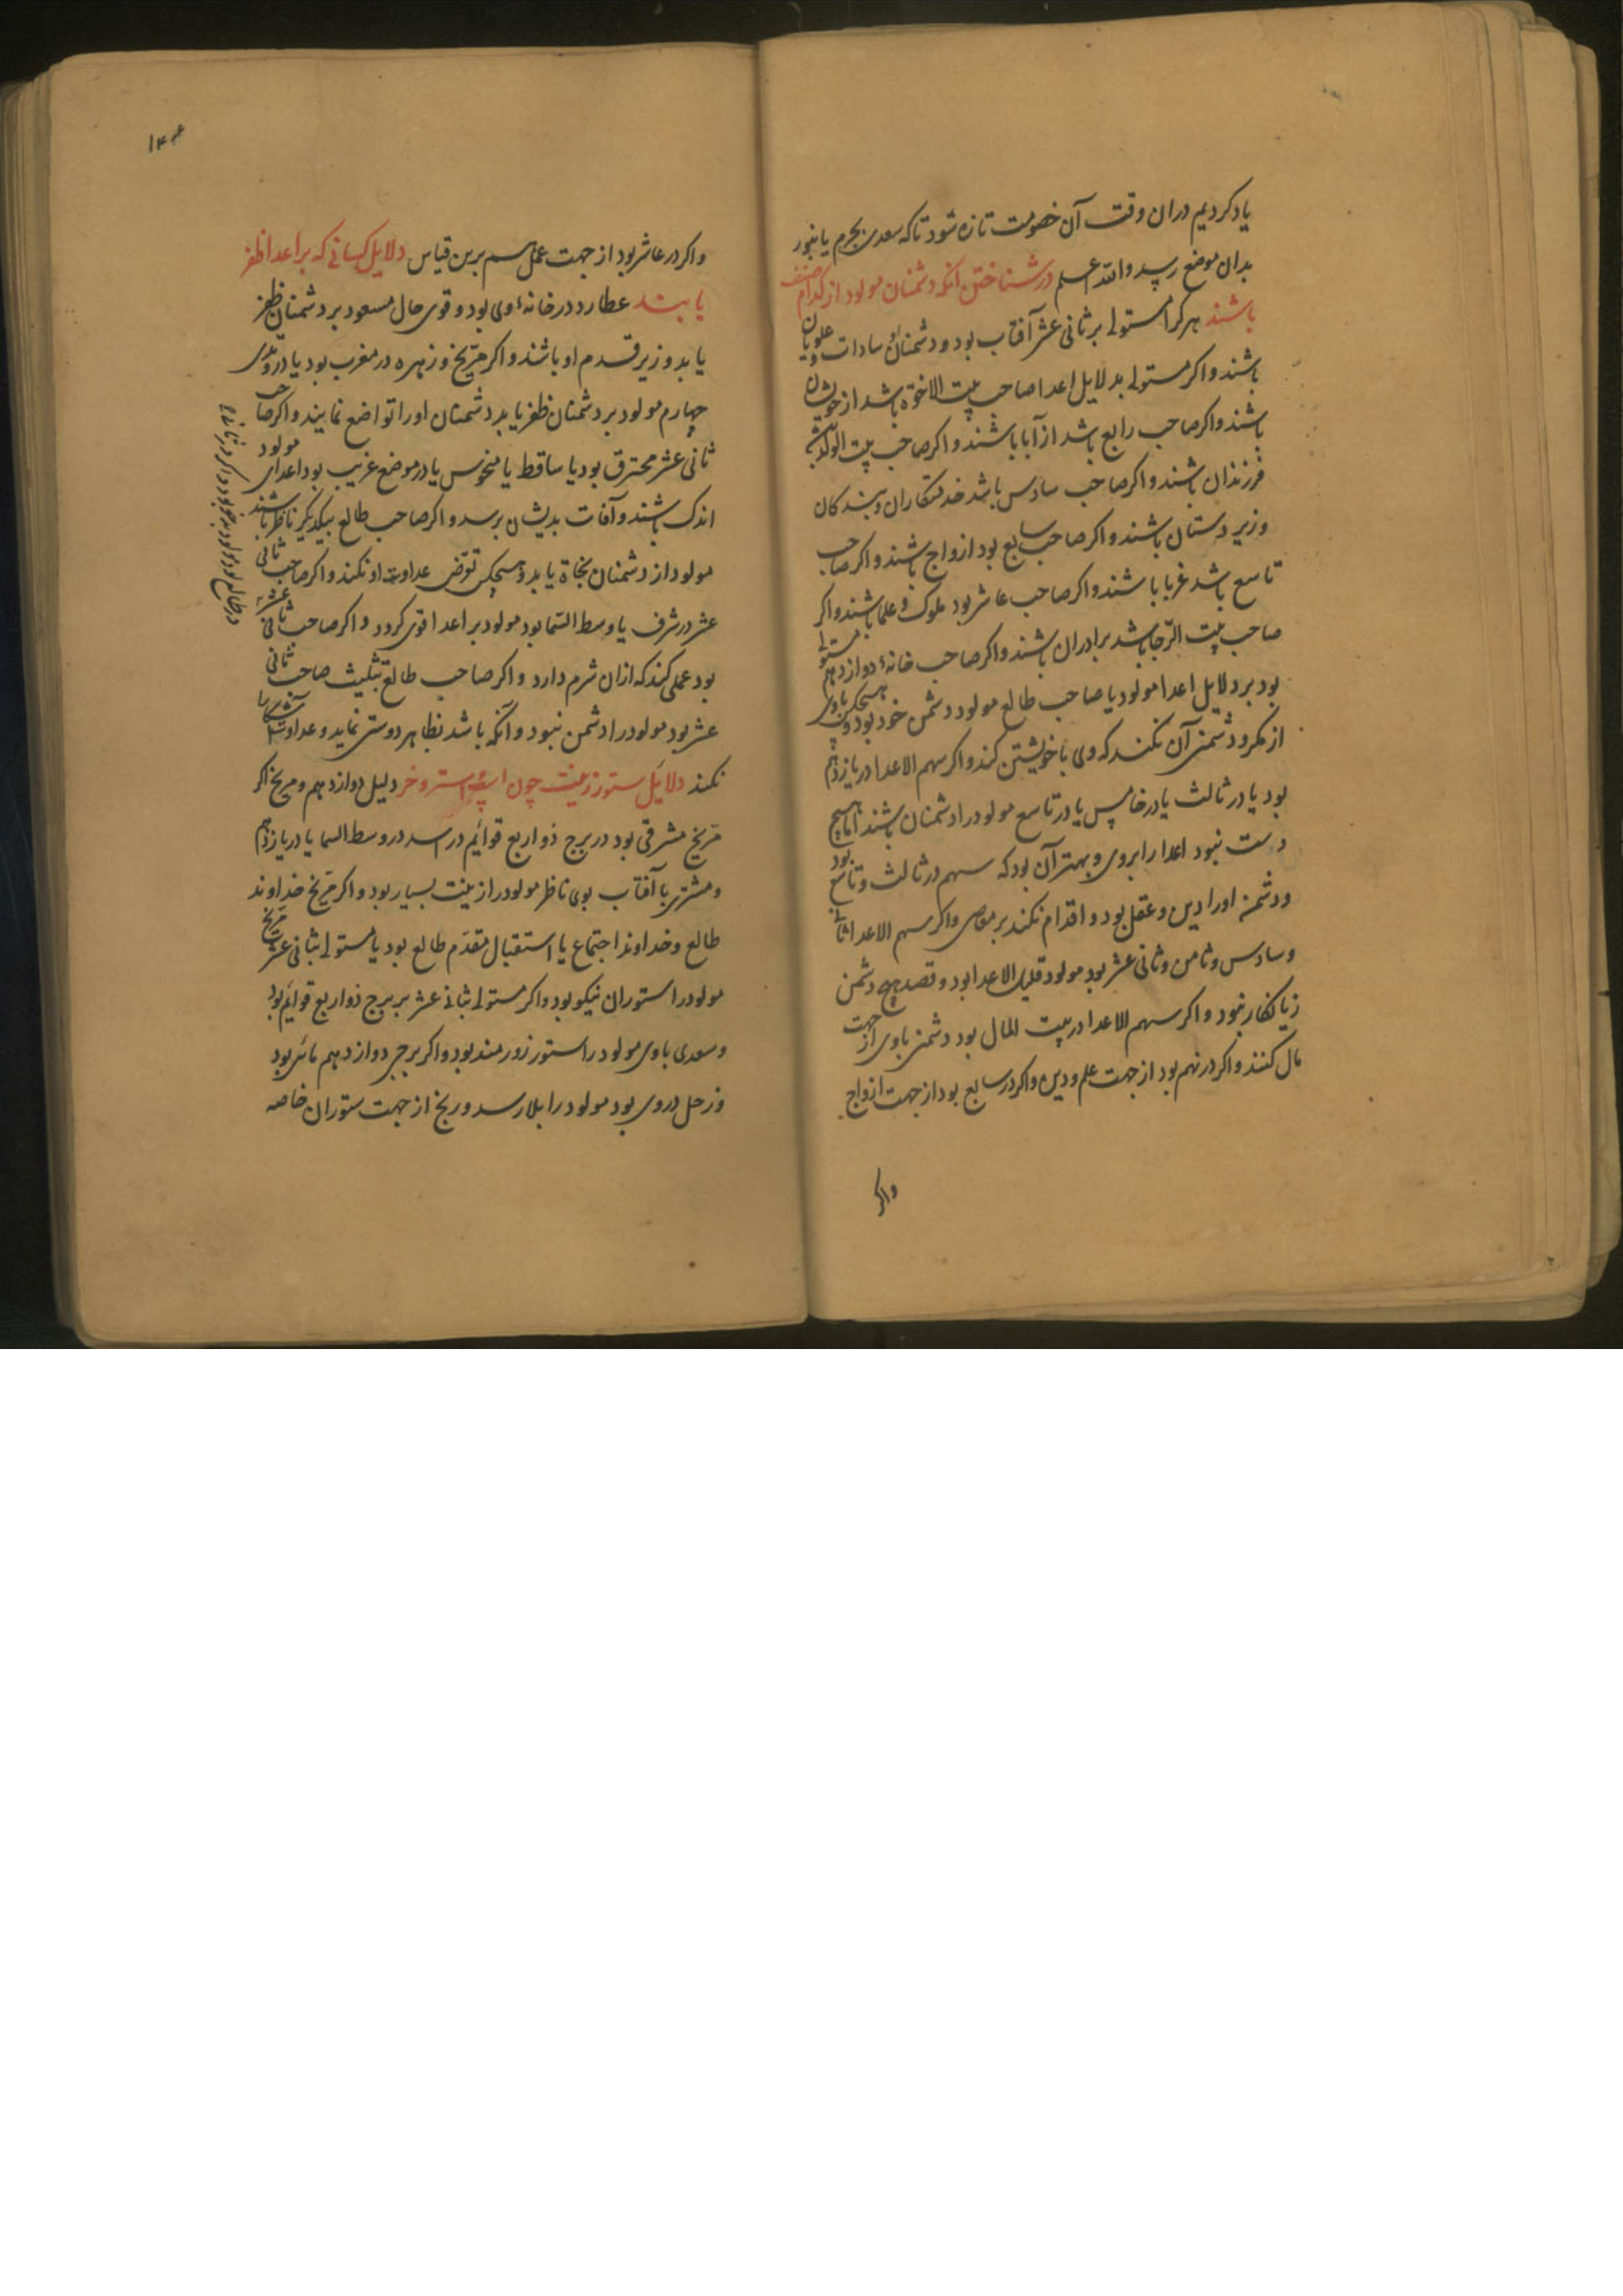 یاد کردیم دران وقت آن خصومت تازه شود تا که سعدی بجرم یا بنور
بدان موضع رسد والله اعلم در شناختن آنکه دشمنان مولود از کدام صنف
باشند هر کرا مستولی بر ثانی عشر آفتاب بود دشمنان او سادات و علویان
باشند و اکر مستولی بدلایل اعدا صاحب بیت الاخوة باشد از خویشان
باشند و اکر صاحب رابع باشد از آبا باشند و اکر صاحب بیت الولد
فرزندان باشند و اکر صاحب سادس باشد خدمتکاران و بندکان
و زیر دستان باشند و اکر صاحب سابع بود ازواج باشند و اکر صاحب
تاسع باشد غربا باشند و اکر صاحب عاشر بود ملوک و علما باشند و اکر
صاحب بیت الرجا باشد برادران باشند و اکر صاحب خانهٔ دوازدهم مستولی
بود بر دلایل اعدا مولود یا صاحب طالع مولود دشمن خود بود و هیچکس باوی
از مکر و دشمنی آن نکند که وی با خویشتن کند و اکر سهم الاعدا در یازدهم
بود یا در ثالث یا در خامس یا در تاسع مولود را دشمنان باشند اما هیچ
دست نبود اعدا را بر وی و بهتر آن بود که سهم در ثالث و تاسع بود
و دشمن او را دین و عقل بود و اقدام نکند بر معاصی و اکر سهم الاعدا
و سادس و ثامن و ثانی عشر بود مولود قلیل الاعدا بود و قصد هیچ دشمن
زیانکار نبود و اکر سهم الاعدا در بیت المال بود دشمنی باوی از جهت
مال کنند و اکر در نهم بود از جهت علم و دین و اکر در سابع بود از جهت ازواج
واکر
واکر در عاشر بود از جهت عمل هم برین قیاس دلایل کسانی که بر اعدا ظفر
یابند عطارد در خانهٔ وی بود و قوی حال مسعود بر دشمنان ظفر
یابد و زیر قدم او باشند و اکر مریخ و زهره در مغرب بود یا در وتدی
چهارم مولود بر دشمنان ظفر یابد دشمنان او را تواضع نمایند و اکر صاحب
ثانی عشر محترق بود یا ساقط یا منحوس یا در موضع غریب بود اعدای مولود
اندک باشند و آفات بدیشان برسد و اکر صاحب طالع بیکدیکر ناظر باشند
مولود از دشمنان نجاة یابد و هیچکس تعرض عداوت او نکند و اکر صاحب ثانی
عشر در شرف یا وسط السما بود مولود بر اعدا قوی کردد و اکر صاحب ثانی عشر
بود عملی کند که ازان شرم دارد و اکر صاحب طالع بتثلیث صاحب ثانی
عشر بود مولود را دشمن نبود و آنکه باشد بظاهر دوستی نماید و عداوت آشکارا
نکند دلایل ستور زینت چون اسب و استر و خر دلیل دوازدهم و مریخ اکر
مریخ مشرقی بود در برج ذو اربع قوائم در اسد در وسط السما یا در یازدهم
و مشتری با آفتاب بوی ناظر مولود را زینت بسیار بود و اکر مریخ خداوند
طالع و خداوند اجتماع یا استقبال مقدم طالع بود یا مستولی بثانی عشر مریخ
مولود را ستوران نیکو بود و اکر مستولی بثانی عشر بر برج ذو اربع قوائم بود
و سعدی باوی مولود را ستور زورمند بود و اکر برج دوازدهم مائی بود
و زحل در وی بود مولود را بلا رسد و رنج از جهت ستوران خاصه